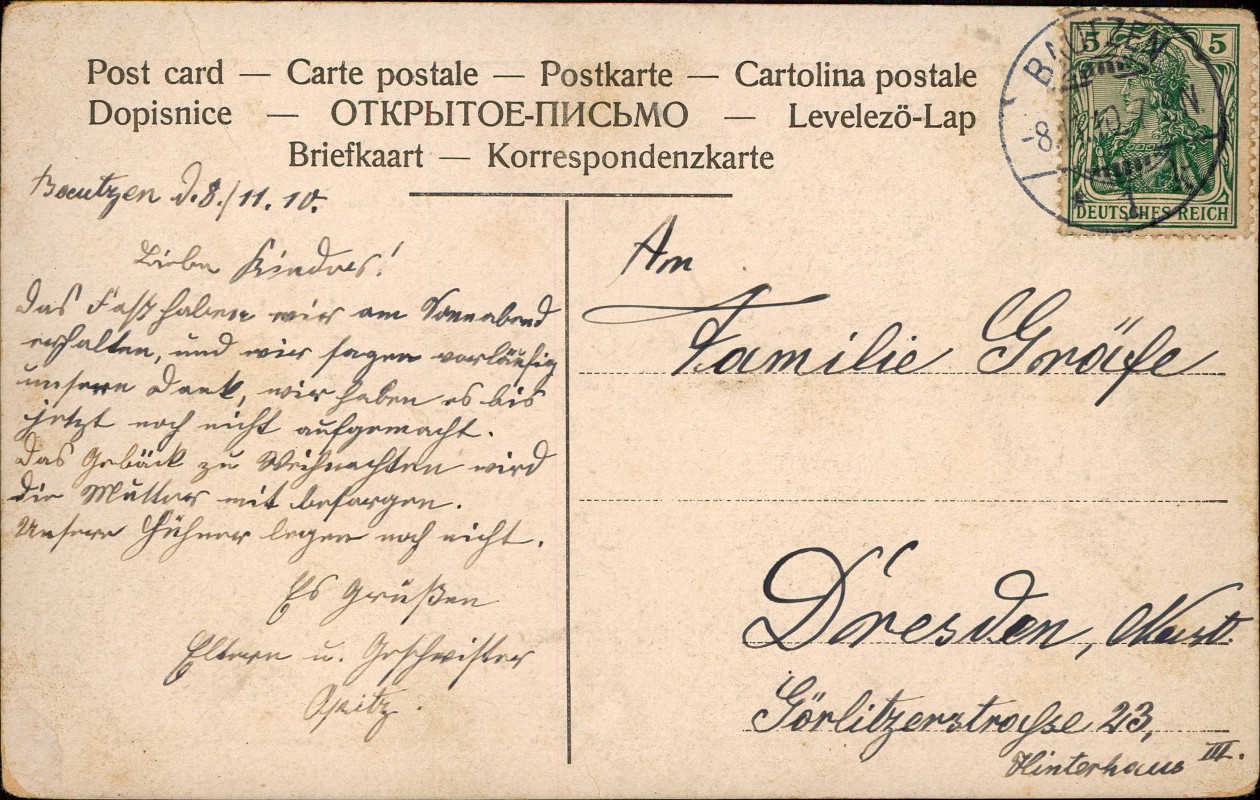 Post card — Carte postale — Postkarte — Cartolina postale
Dopisnice — ОТКРЫТОЕ-ПИСЬМО — Levelezö-Lap
Briefkaart — Korrespondenzkarte
BAUTZEN
5 5
DEUTSCHES REICH
Bautzen d. 8./11. 10.
Liebe Kinder!
Das Faß haben wir am Sonnabend
erhalten, und wir sagen vorläufig
unsern Dank, wir haben es bis
jetzt noch nicht aufgemacht.
Das Gebäck zu Weihnachten wird
die Mutter mit besorgen.
Unsere Hühner legen noch nicht.
Es Grüßen
Eltern u. Geschwister
Opitz.
An
Familie Gräfe
Dresden, Neust.
Görlitzerstraße 23,
Hinterhaus III.